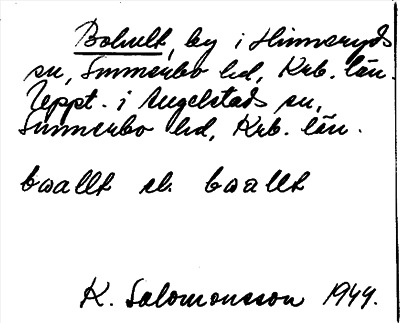 Bohult, by i Hinneryds
sn, Sunnerbo hd, Krb. län.
Uppt. i Angelstads sn,
Sunnerbo hd, Krb. län.
boallt el. boallt
K. Salomonsson 1944.